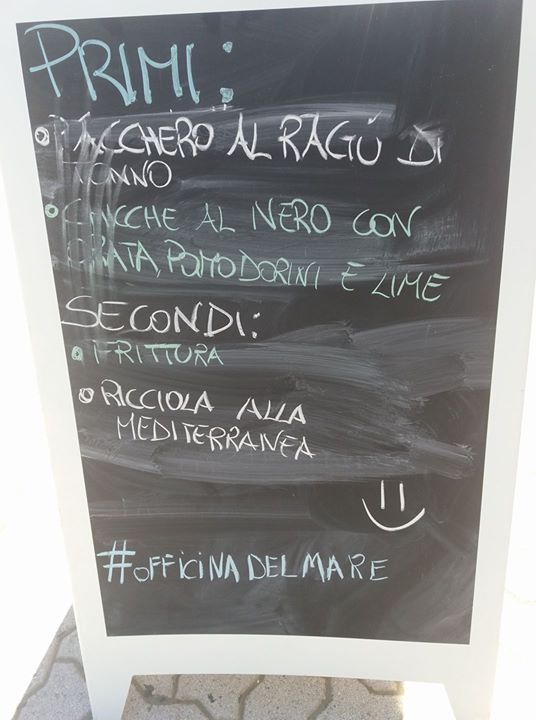 PRIMI:
PACCHERO AL RAGÙ DI
TONNO
CHICCHE AL NERO CON
ORATA, POMODORINI E LIME
SECONDI:
FRITTURA
RICCIOLA ALLA
MEDITERRANEA
#OFFICINADELMARE